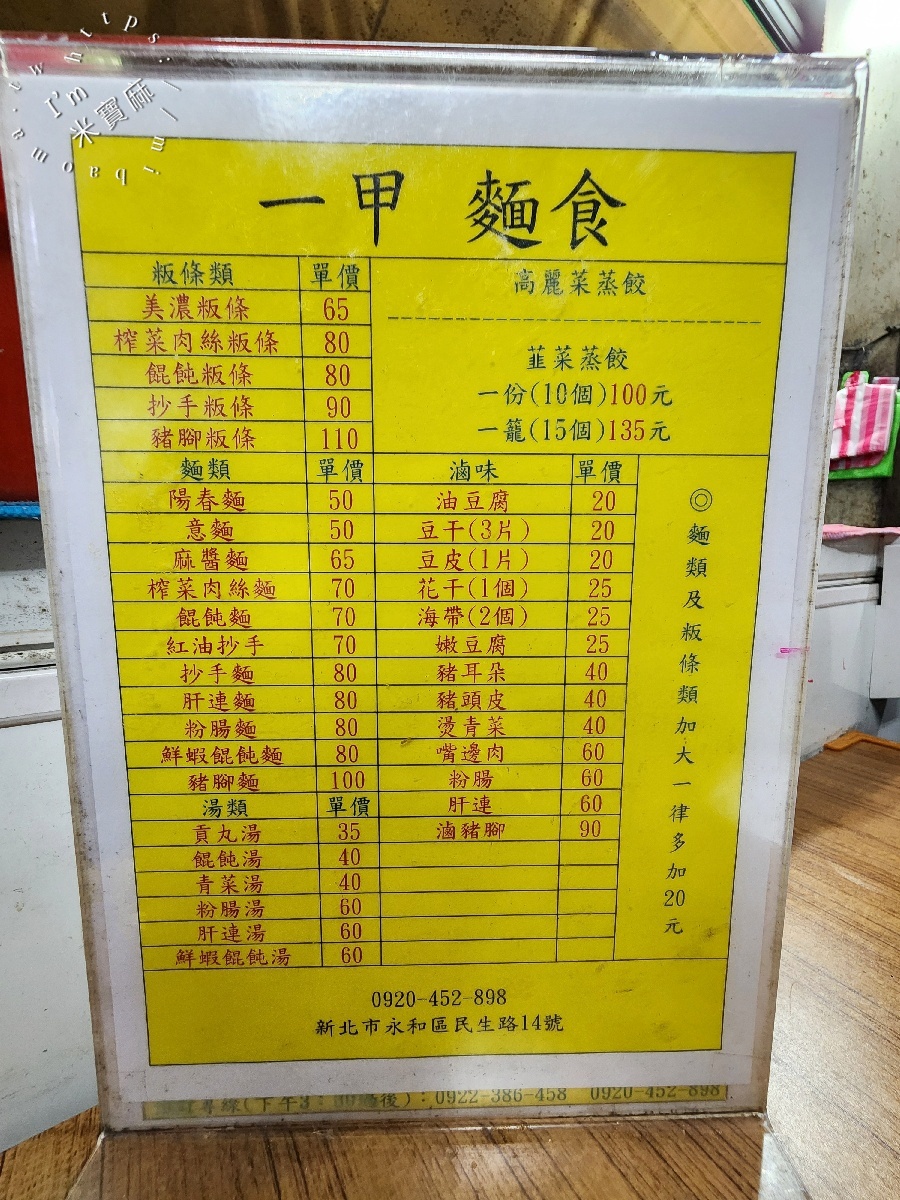 I'm
米寶麻
https
mibao
一甲 麵食
粄條類 單價
美濃粄條 65
榨菜肉絲粄條 80
餛飩粄條 80
抄手粄條 90
豬腳粄條 110
高麗菜蒸餃
韮菜蒸餃
一份(10個)100元
一籠(15個)135元
麵類 單價
陽春麵 50
意麵 50
麻醬麵 65
榨菜肉絲麵 70
餛飩麵 70
紅油抄手 70
抄手麵 80
肝連麵 80
粉腸麵 80
鮮蝦餛飩麵 80
豬腳麵 100
湯類 單價
貢丸湯 35
餛飩湯 40
青菜湯 40
粉腸湯 60
肝連湯 60
鮮蝦餛飩湯 60
滷味 單價
油豆腐 20
豆干(3片) 20
豆皮(1片) 20
花干(1個) 25
海帶(2個) 25
嫩豆腐 25
豬耳朵 40
豬頭皮 40
燙青菜 40
嘴邊肉 60
粉腸 60
肝連 60
滷豬腳 90
◎麵類及粄條類加大一律多加20元
0920-452-898
新北市永和區民生路14號
專線(下午3:30點後):0922-386-458 0920-452-898